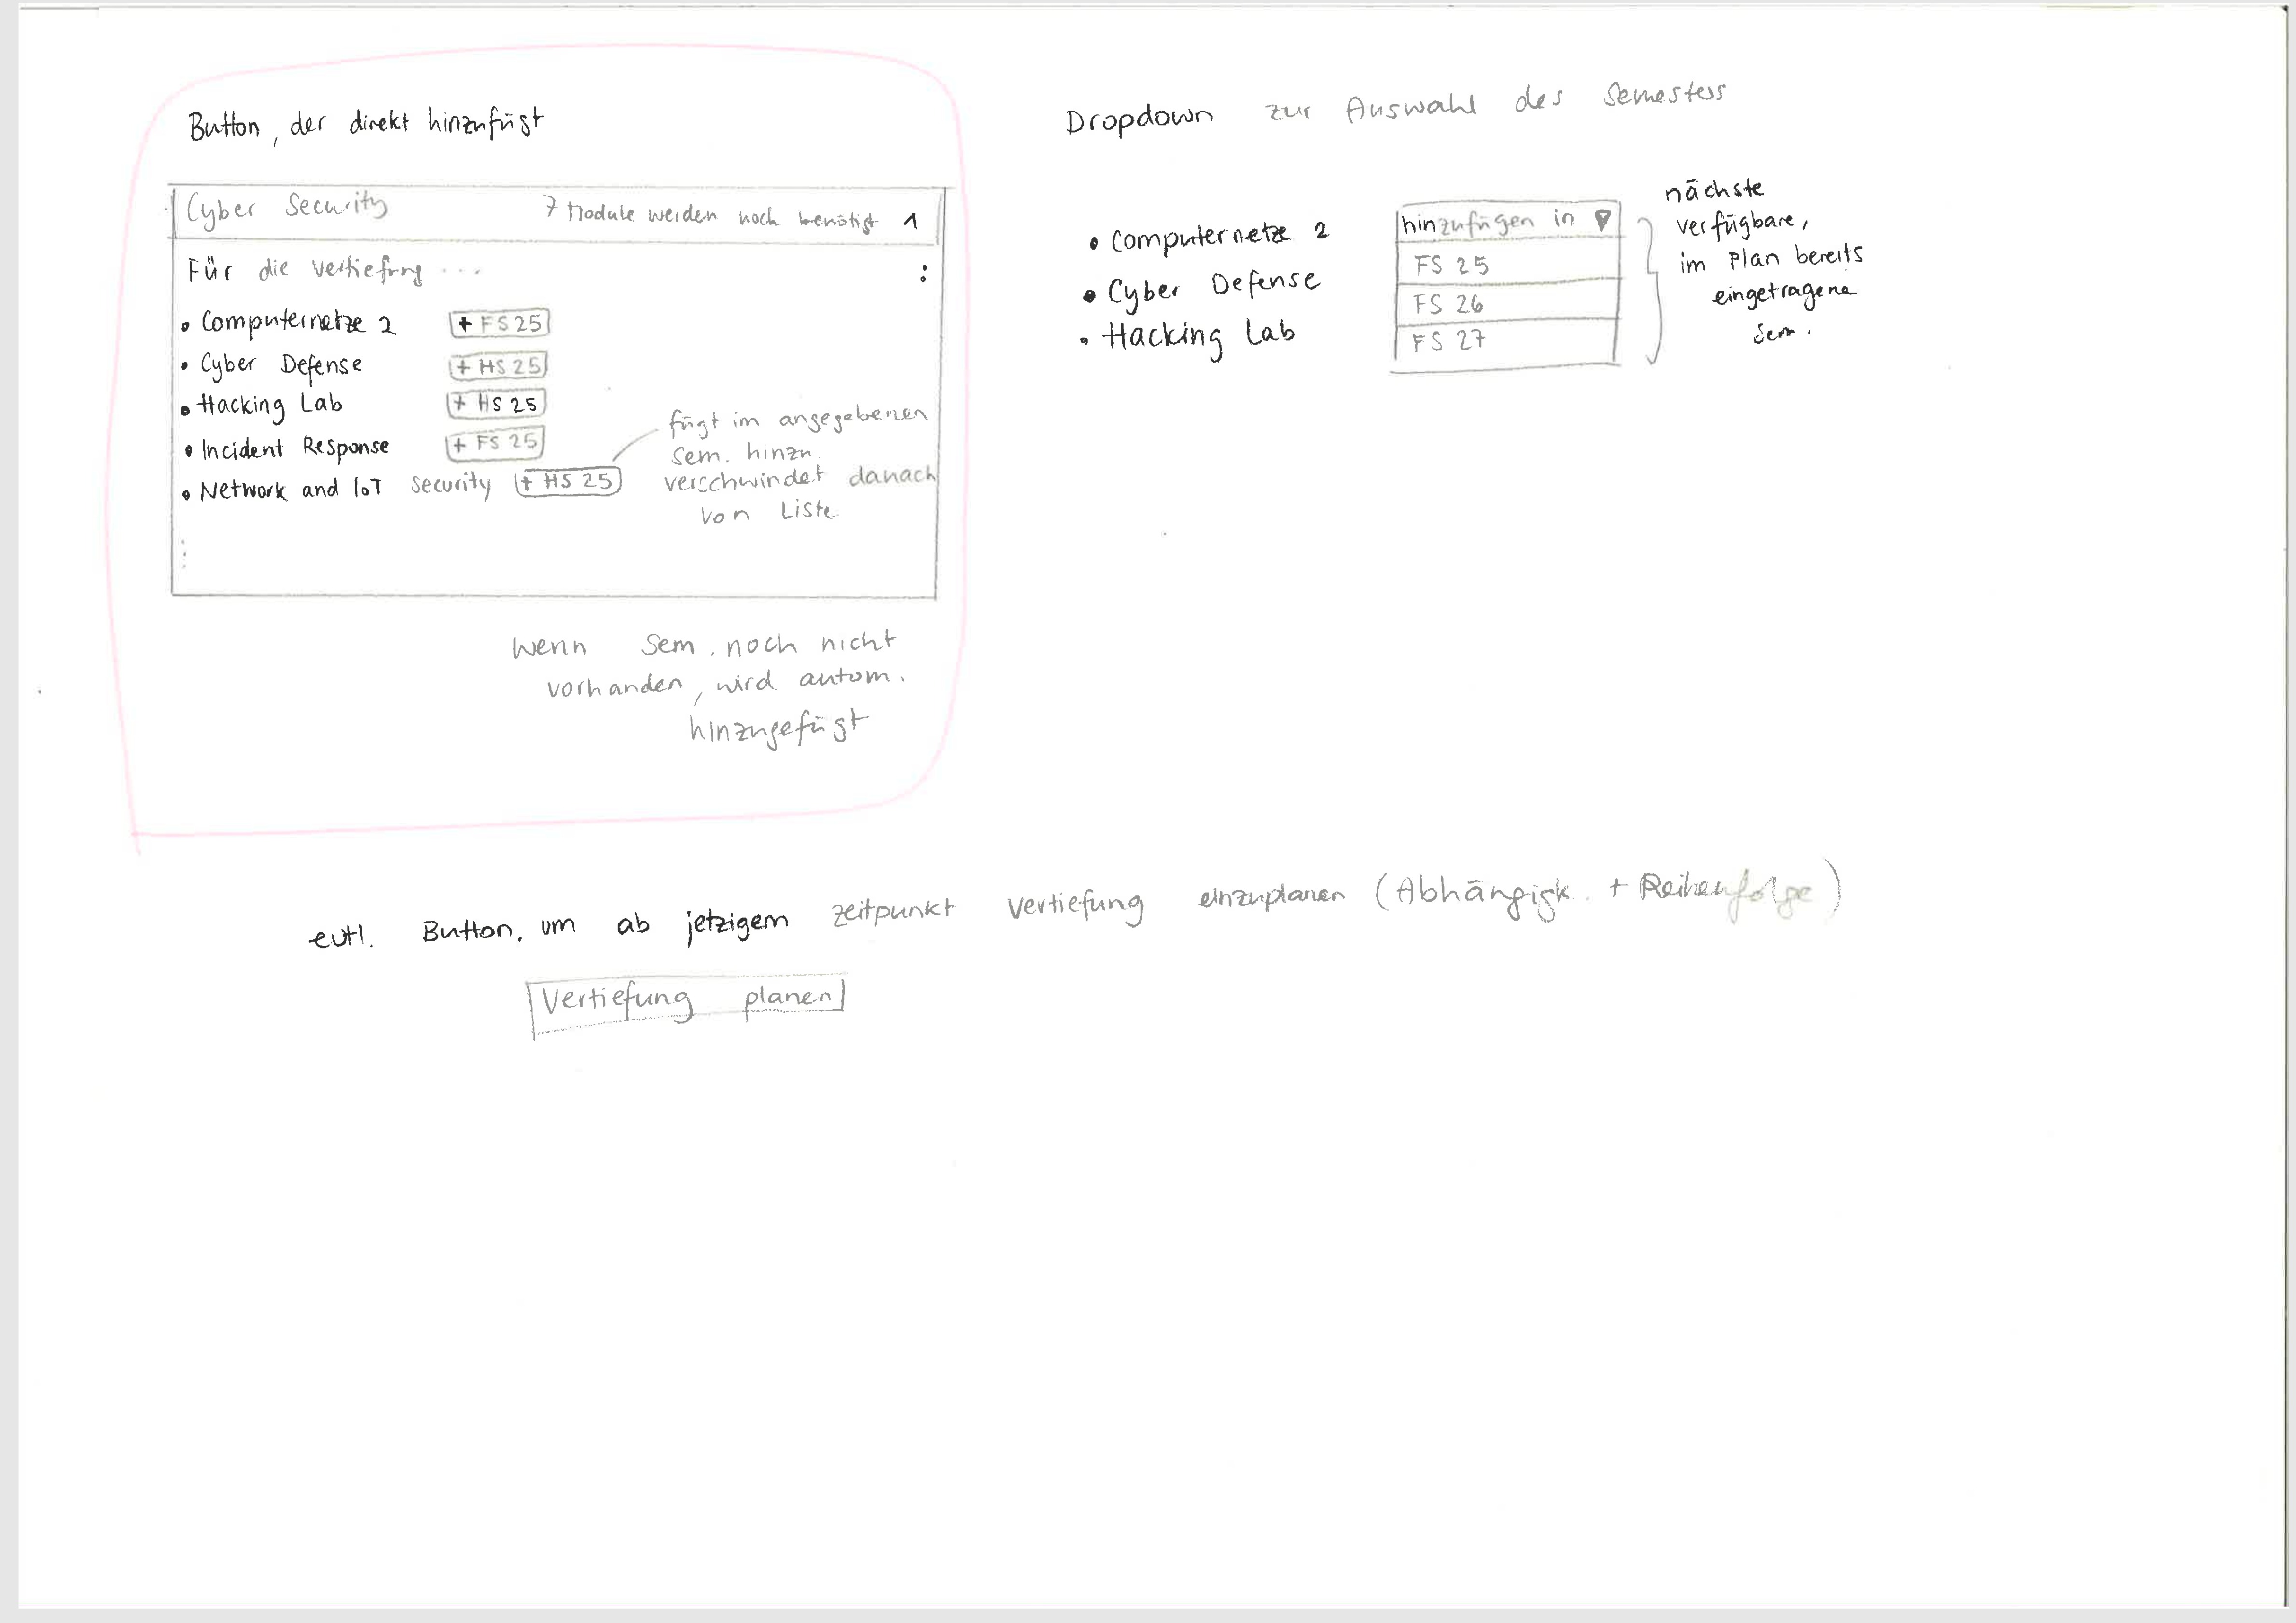 Button, der direkt hinzufügt
Cyber Security 7 Module werden noch benötigt
Für die Vertiefung ...
• Computernetze 2 + FS 25
• Cyber Defense + HS 25
• Hacking Lab + HS 25
• Incident Response + FS 25
• Network and IoT Security + HS 25
fügt im angegebenen
Sem. hinzu
verschwindet danach
von Liste
wenn Sem. noch nicht
vorhanden, wird autom.
hinzugefügt
Dropdown zur Auswahl des Semesters
• Computernetze 2
• Cyber Defense
• Hacking Lab
hinzufügen in
FS 25
FS 26
FS 27
nächste
verfügbare,
im Plan bereits
eingetragene
Sem.
evtl. Button, um ab jetzigem Zeitpunkt Vertiefung einzuplanen (Abhängigk. + Reihenfolge)
Vertiefung planen